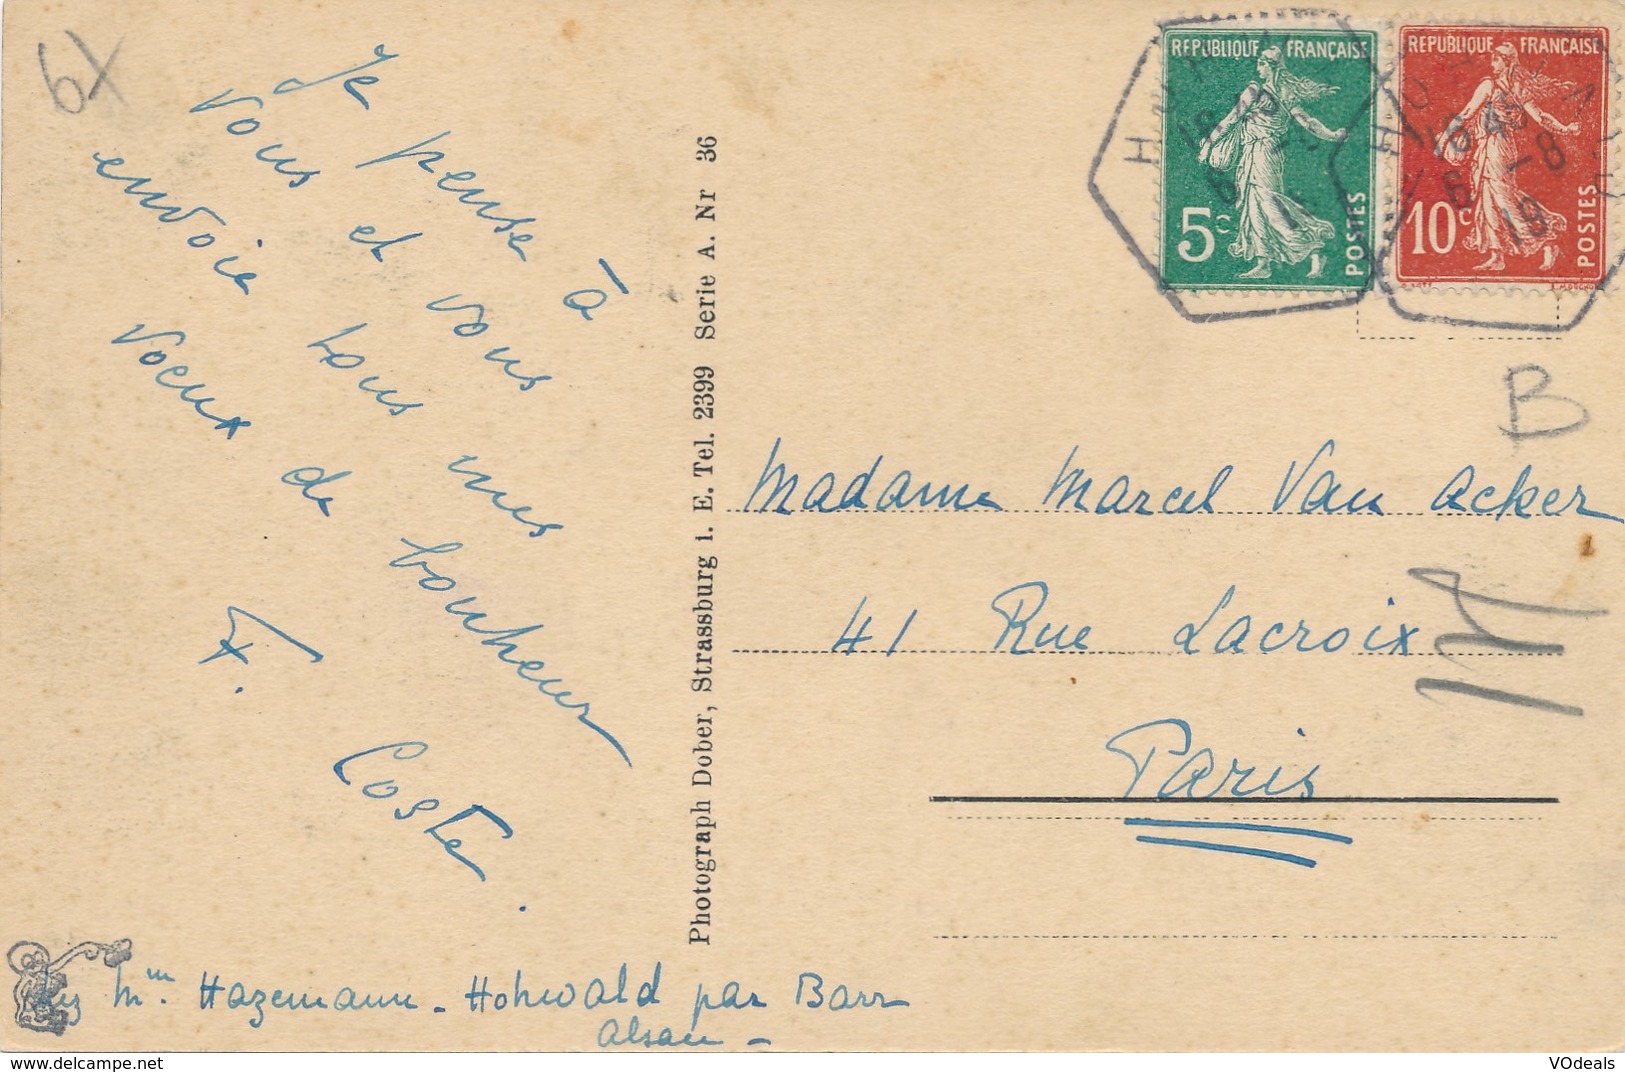 6X
Je pense à
vous et vous
envoie tous mes
voeux de bonheur
F. Coste.
Mme. Hazemann - Hohwald par Barr
Alsace -
Photograph Dober, Strassburg i. E. Tel. 2399 Serie A. Nr 36
REPUBLIQUE FRANÇAISE
5c
POSTES
REPUBLIQUE FRANÇAISE
10c
POSTES
18 45
6 -8
19
B
Madame Marcel Van Acker
41 Rue Lacroix
Paris
VOdeals